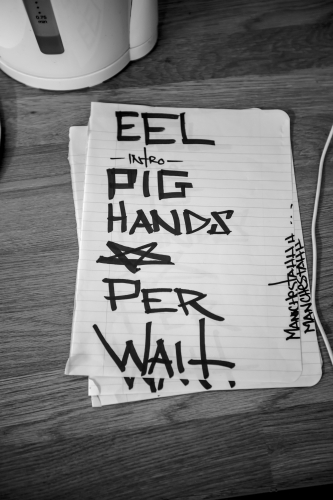 EEL
- INTRO -
PIG
HANDS
PER
WAIT
MANCHRSTAHHH...
MANCHRSTAHH